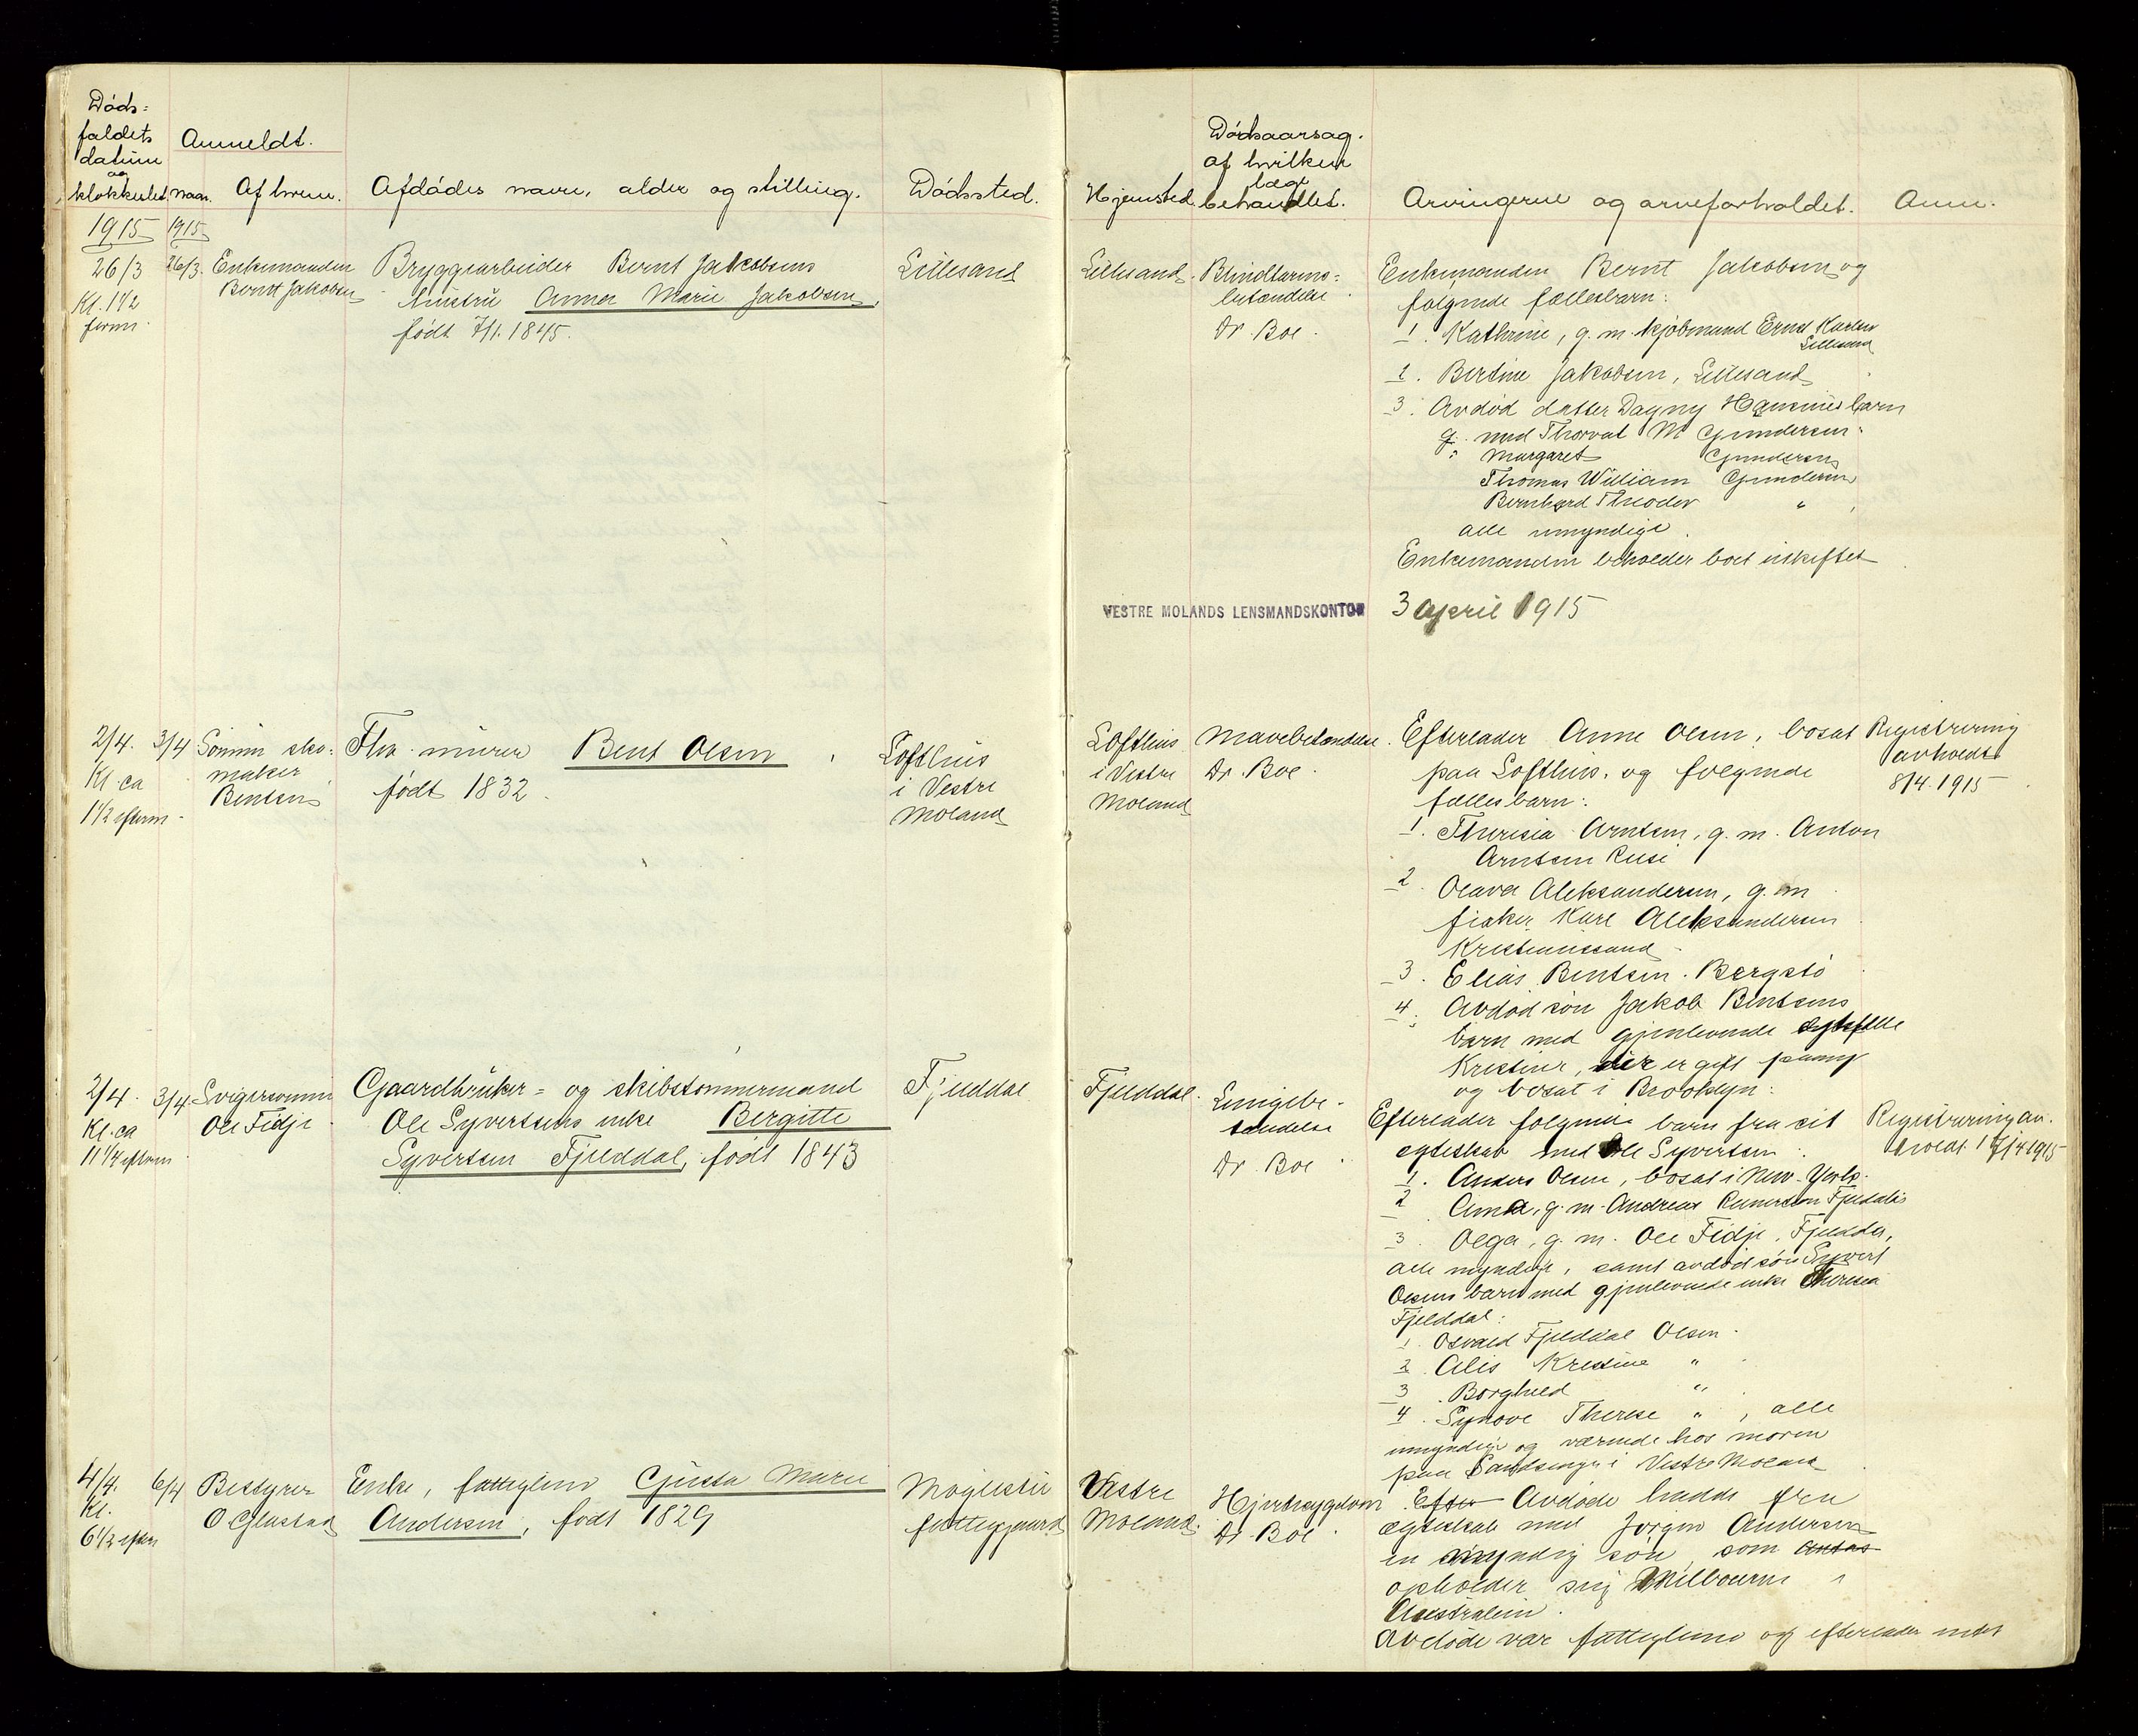 Døds=
faldets
datum
og
klokkeslet.
Anmeldt.
naar.
Af hvem.
Afdødes navn, alder og stilling.
Dødssted.
Hjemsted.
Dødsaarsag.
af hvilken
læge
behandlet.
Arvingerne og arveforholdet.
Anm.
1915
1915
26/3
Kl. 1 1/2
form.
26/3.
Enkemanden
Bernt Jakobsen
Bryggearbeider Bernt Jakobsens
hustru Anna Marie Jakobsen,
født 7/1. 1845.
Lillesand
Lillesand.
Blindtarms=
betændelse
Dr. Boe.
Enkemanden Bernt Jakobsen og
følgende fællesbarn:
1. Kathrine, g. m. kjøbmand Ernst Karlsen
Lillesand
2. Bertine Jakobsen, Lillesand
3. Avdød datter Dagny barn
g. med Thorval M Gundersen:
Margaret Gundersen
Thomas William Gundersen
Bernhard Theodor "
alle umyndige.
Enkemanden beholder boet uskiftet
VESTRE MOLANDS LENSMANDSKONTOR
3 april 1915
2/4.
Kl. ca
1 1/2 efterm.
3/4
Sønnen sko=
maker
Bentsen
Fhv. murer Bent Olsen,
født 1832.
Lofthus
i Vestre
Moland
Lofthus
i Vestre
Moland
Mavebetændelse.
Dr. Boe.
Efterlader Anne Olsen, bosat
paa Lofthus, og følgende
fællesbarn:
1. Theresia Arntsen, g. m. Anton
Arntsen
2. Olava Aleksandersen, g. m
fisker Karl Aleksandersen
Kristianssand
3. Elias Bentsen. Bergstø
4. Avdød søn Jakob Bentsens
barn med gjenlevende egtefælle
Kristine, der er gift paany
og bosat i Brooklyn:
Registrering
avholdt
8/4. 1915
2/4.
Kl. ca
11 1/4 efterm
3/4
Svigersønnen
Ole Fidje
Gaardbruker= og skibstømmermand
Ole Syvertsens enke Bergitte
Syvertsen Fjelddal, født 1843
Fjelddal
Fjelddal.
Lungebe-
tændelse
Dr. Boe
Efterlader følgende barn fra sit
egteskab med Ole Syvertsen:
1. Anders Olsen, bosat i New-York.
2 Anna, g. m. Andreas
3. Olga, g. m. Ole Fidje, Fjelddal,
alle myndige, samt avdød søn Syvert
Olsens barn med gjenlevende enke Theresia
Fjelddal:
1. Osvald Fjelddal Olsen.
2. Alis Kristine "
3. Borghild "
4. Synove Therese ", alle
umyndige og værende hos moren
paa i Vestre Moland
Registrering av-
holdt 17/4 1915
4/4.
Kl.
6 1/2 efterm
6/4
Bestyrer
O Glastad
Enke, fattiglem Gjusta Marie
Andersen, født 1829
Møglestu
fattiggaard
Vestre
Moland.
Hjertesygdom
Dr. Boe
Efter Avdøde hadde fra
egteskab med Jørgen Andersen
en myndig søn, som
opholder sig Melbourne,
Australien.
Avdøde var fattiglem og efterlader intet